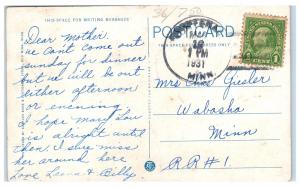 THIS SPACE FOR WRITING MESSAGES
POST CARD
Dear mother.
we Can't come out
sunday for dinner
but we will be out
either afternoon
or evening
I hope mary Lou
is alright until
then I sure miss
her around here
Love Leona & Billy
1 PM
1931
MINN.
1
Mrs Giesler
Wabasha
Minn
RR#1